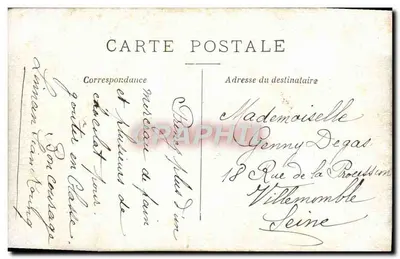 CARTE POSTALE
Correspondance
Adresse du destinataire
Prend plus d'un
morceau de pain
et plusieurs de
chocolat pour
goûter en classe.
Bon courage
Mademoiselle
Jenny Degas
18 Rue de la Procession
Villemomble
Seine
CPAPHIL